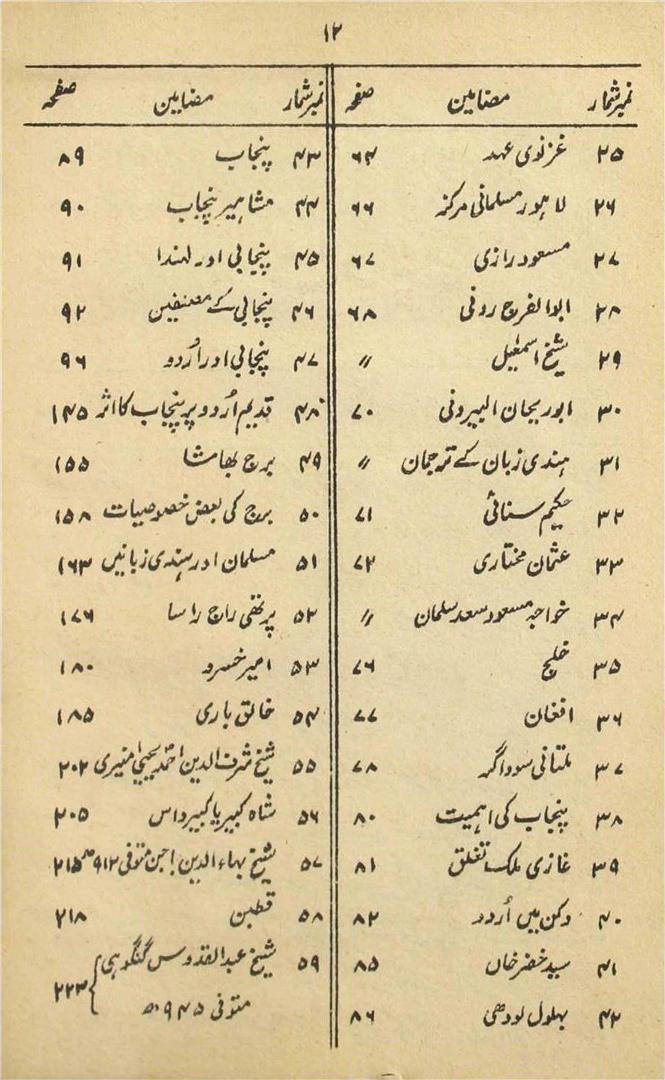 ۱۲
نمبرشمار مضامین صفحہ
۲۵ غزنوی عہد ۶۴
۲۶ لاہور مسلمانی مرکز ۶۶
۲۷ مسعود رازی ۶۷
۲۸ ابوالفرج رونی ۶۸
۲۹ شیخ اسمٰعیل "
۳۰ ابوریحان البیرونی ۷۰
۳۱ ہندی زبان کے ترجمان "
۳۲ حکیم سنائی ۷۱
۳۳ عثمان مختاری ۷۲
۳۴ خواجہ مسعود سعد سلمان "
۳۵ خلج ۷۶
۳۶ افغان ۷۷
۳۷ ملتانی سوداگر ۷۸
۳۸ پنجاب کی اہمیت ۸۰
۳۹ غازی ملک تغلق ۸۱
۴۰ دکن میں اُردو ۸۲
۴۱ سید خضر خاں ۸۵
۴۲ بہلول لودھی ۸۶
نمبرشمار مضامین صفحہ
۴۳ پنجاب ۸۹
۴۴ مشاہیر پنجاب ۹۰
۴۵ پنجابی اور لہندا ۹۱
۴۶ پنجابی کے مصنفین ۹۲
۴۷ پنجابی اور اُردو ۹۶
۴۸ قدیم اُردو پر پنجاب کا اثر ۱۴۵
۴۹ برج بھاشا ۱۵۵
۵۰ برج کی بعض خصوصیات ۱۵۸
۵۱ مسلمان اور ہندی زبانیں ۱۶۳
۵۲ پرتھی راج راسا ۱۷۶
۵۳ امیر خسرو ۱۸۰
۵۴ خالق باری ۱۸۵
۵۵ شیخ شرف الدین احمد یحییٰ منیری ۲۰۲
۵۶ شاہ کبیر یا کبیر داس ۲۰۵
۵۷ شیخ بہاء الدین باجن متوفی ۹۱۲ھ ۲۱۵
۵۸ قطبن ۲۱۸
۵۹ شیخ عبدالقدوس گنگوہی
متوفی ۹۴۵ھ ۲۲۳